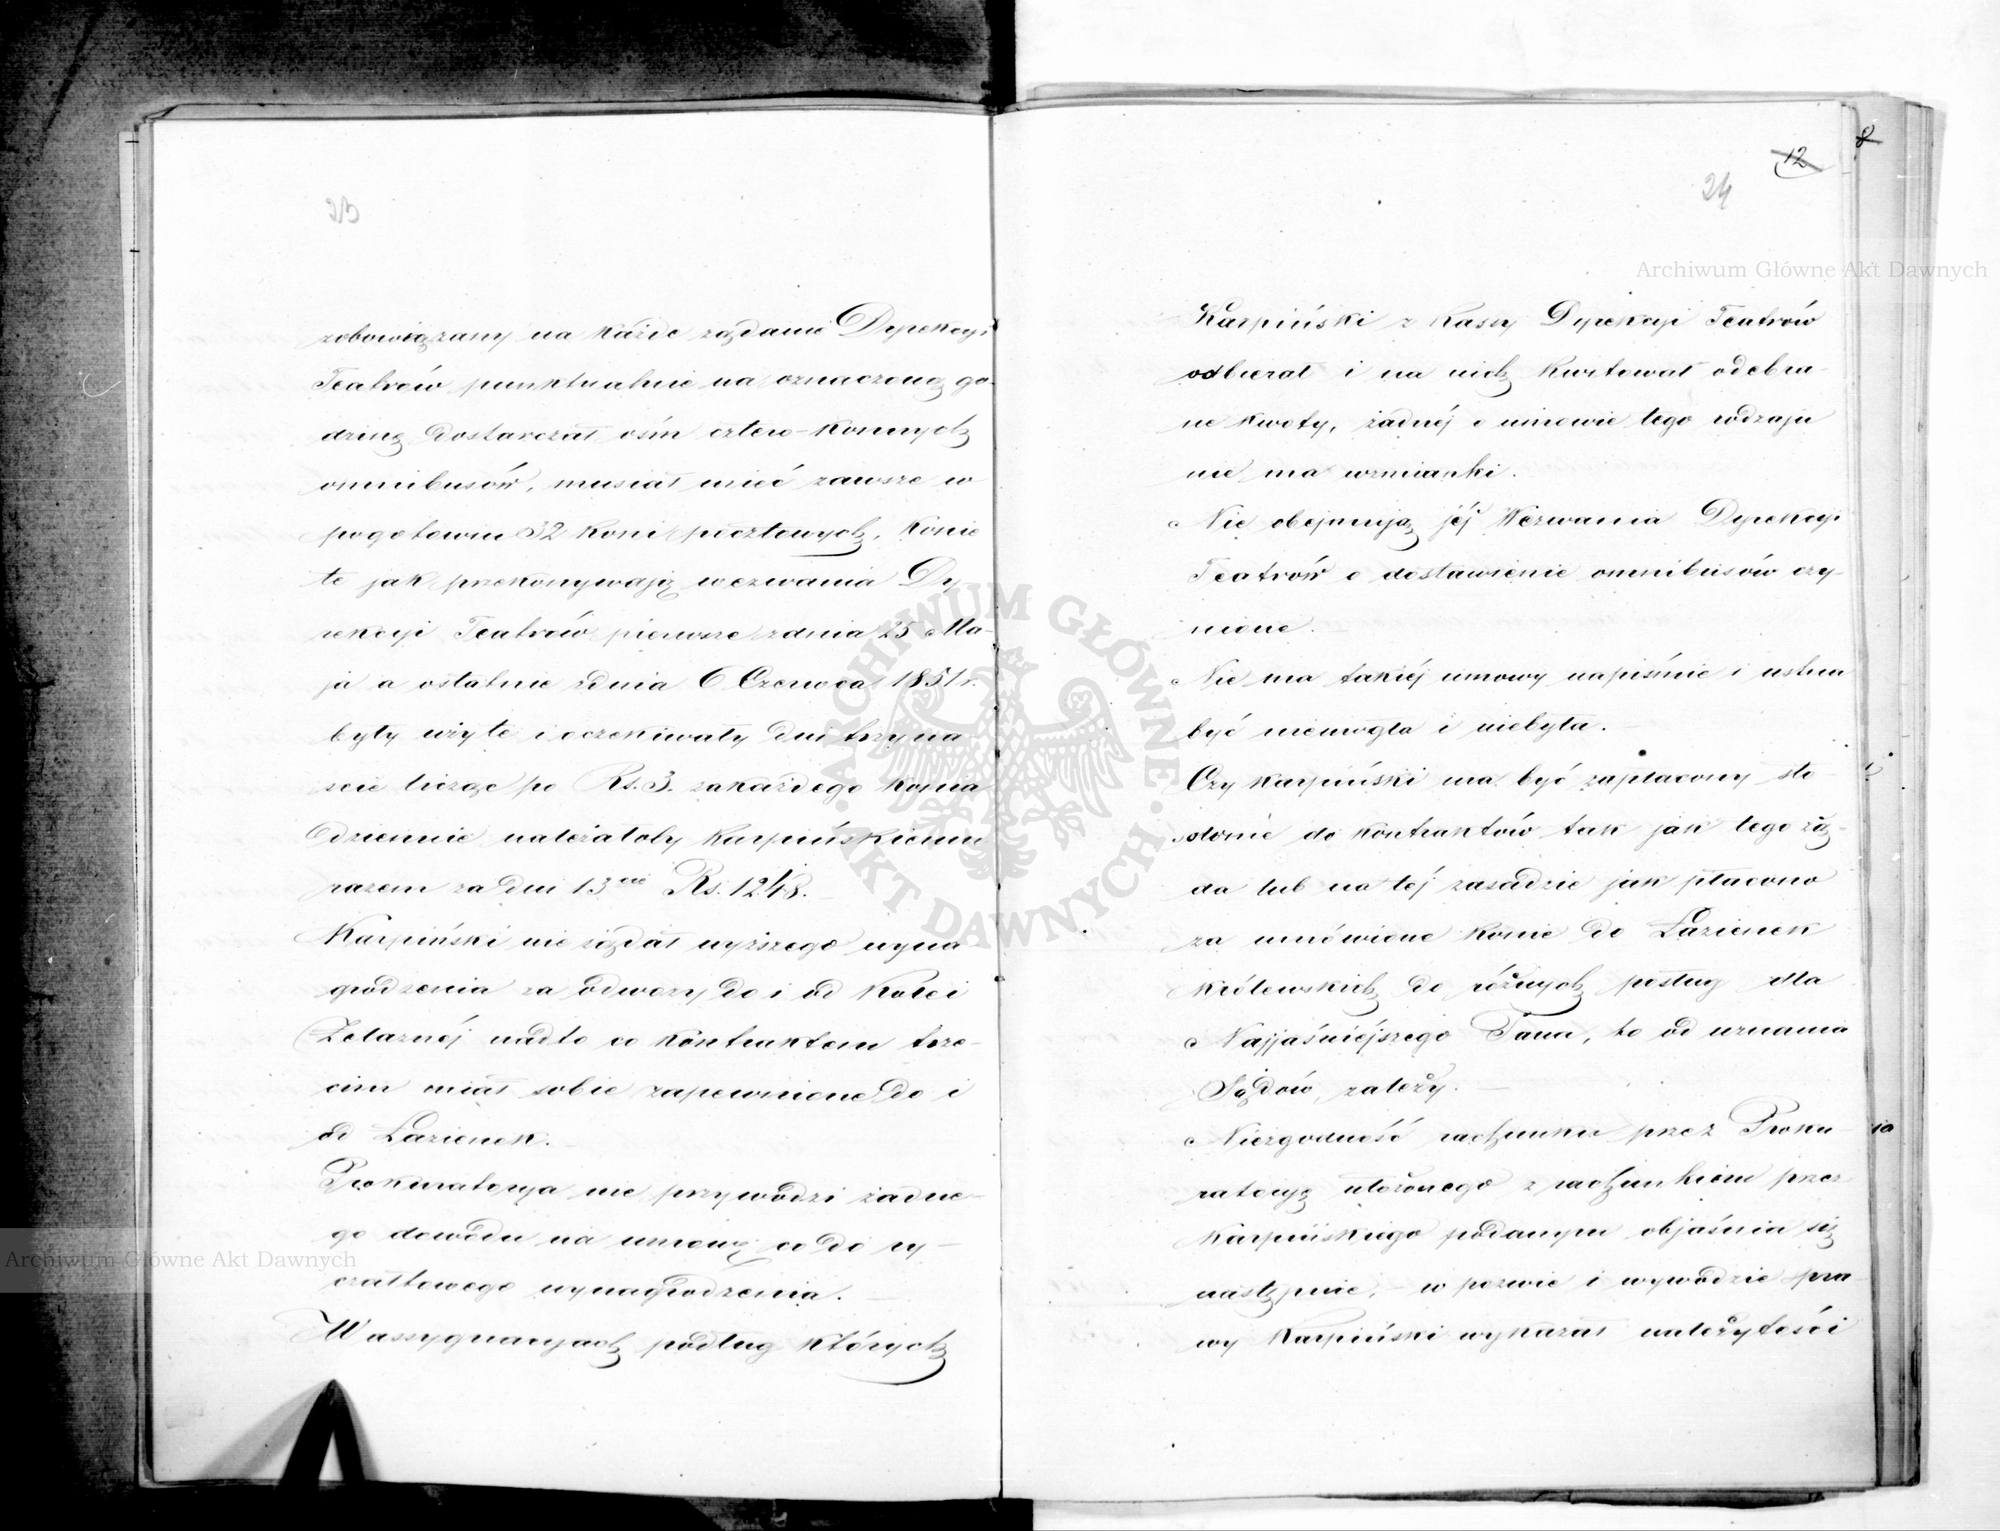 23
zobowiązany na każde żądanie Dyrekcyi
Teatrów punktualnie na oznaczoną go-
dzinę dostarczał ośm cztero-konnych
omnibusów, musiał mieć zawsze w
pogotowiu 32 koni pocztowych, konie
te jak przekonywają wezwania Dy-
rekcyi Teatrów pierwsze z dnia 25 Ma-
ja a ostatnie z dnia 6 Czerwca 1851 r.
były użyte i oczekiwały dni trzyna-
ście licząc po Rs. 3. za każdego konia
dziennie należałoby Karpińskiemu
razem za dni 13cie Rs. 1248.
Karpiński nie żądał wyższego wyna
grodzenia za odwozy do i od Kolei
Żelaznéj nadto co kontraktem trze-
cim miał sobie zapewnione do i
od Łazienek.
Prokuratorya nie przywodzi żadne-
go dowodu na umowę co do ry-
czałtowego wynagrodzenia.
W assygnacyach podług których
12
8
24
Karpiński z Kassy Dyrekcyi Teatrów
odbierał i na nich kwitował odebra-
ne kwoty, żadnéj o umowie tego rodzaju
nie ma wzmianki.
Nie obejmują jéj Wezwania Dyrekcyi
Teatrów o dostawienie omnibusów czy-
nione.
Nie ma takiéj umowy na piśmie i ustna
być niemogła i niebyła.
Czy Karpiński ma być zapłacony sto
sownie do kontraktów tak jak tego żą-
da lub na téj zasadzie jak płacono
za umówione konie do Łazienek
Królewskich do różnych posług dla
Najjaśniéjszego Pana, to od uznania
Sądów zależy.
Niezgodność rachunku przez Proku-
ratoryę ułożonego z rachunkiem przez
Karpińskiego podanym objaśnia się
następnie, - w pozwie i wywodzie pra-
wy Karpiński wykazał należytości
Archiwum Główne Akt Dawnych
Archiwum Główne Akt Dawnych
ARCHIWUM GŁÓWNE · AKT DAWNYCH ·